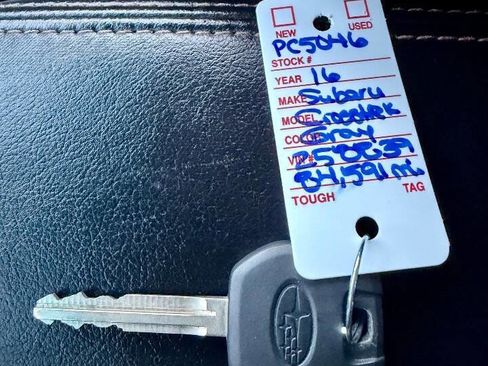 NEW USED
PC5046
STOCK #
YEAR 16
MAKE Subaru
MODEL Crosstrek
COLOR Gray
VIN # 258839
84,591 mi
TOUGH TAG